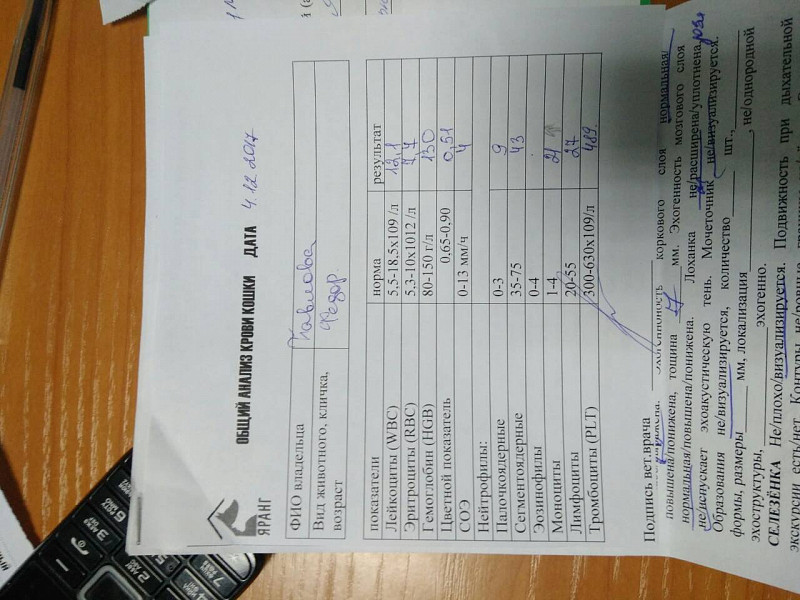 ЯРАНГ
ОБЩИЙ АНАЛИЗ КРОВИ КОШКИ ДАТА 4.12.2017
ФИО владельца Павлова
Вид животного, кличка, возраст Федор.
показатели норма результат
Лейкоциты (WBC) 5,5-18,5х109 /л 12,1
Эритроциты (RBC) 5,3-10х1012 /л 7,7
Гемоглобин (HGB) 80-150 г/л 130
Цветной показатель 0,65-0,90 0,51
СОЭ 0-13 мм/ч 4
Нейтрофилы:
Палочкоядерные 0-3 9
Сегментоядерные 35-75 43
Эозинофилы 0-4
Моноциты 1-4 21
Лимфоциты 20-55 27
Тромбоциты (PLT) 300-630х109/л 489
Подпись вет.врача
коркового слоя нормальная/
повышена/понижена, толщина мм. Эхогенность мозгового слоя
нормальная/повышена/понижена. Лоханка не/расширена/уплотнена
не/испускает эхоакустическую тень. Мочеточник не/визуализируется.
Образования не/визуализируется, количество шт.,
формы, размеры мм, локализация , не/однородной
эхоструктуры, эхогенно.
СЕЛЕЗЁНКА Не/плохо/визуализируется. Подвижность при дыхательной
экскурсии есть/нет. Контуры не/ровные